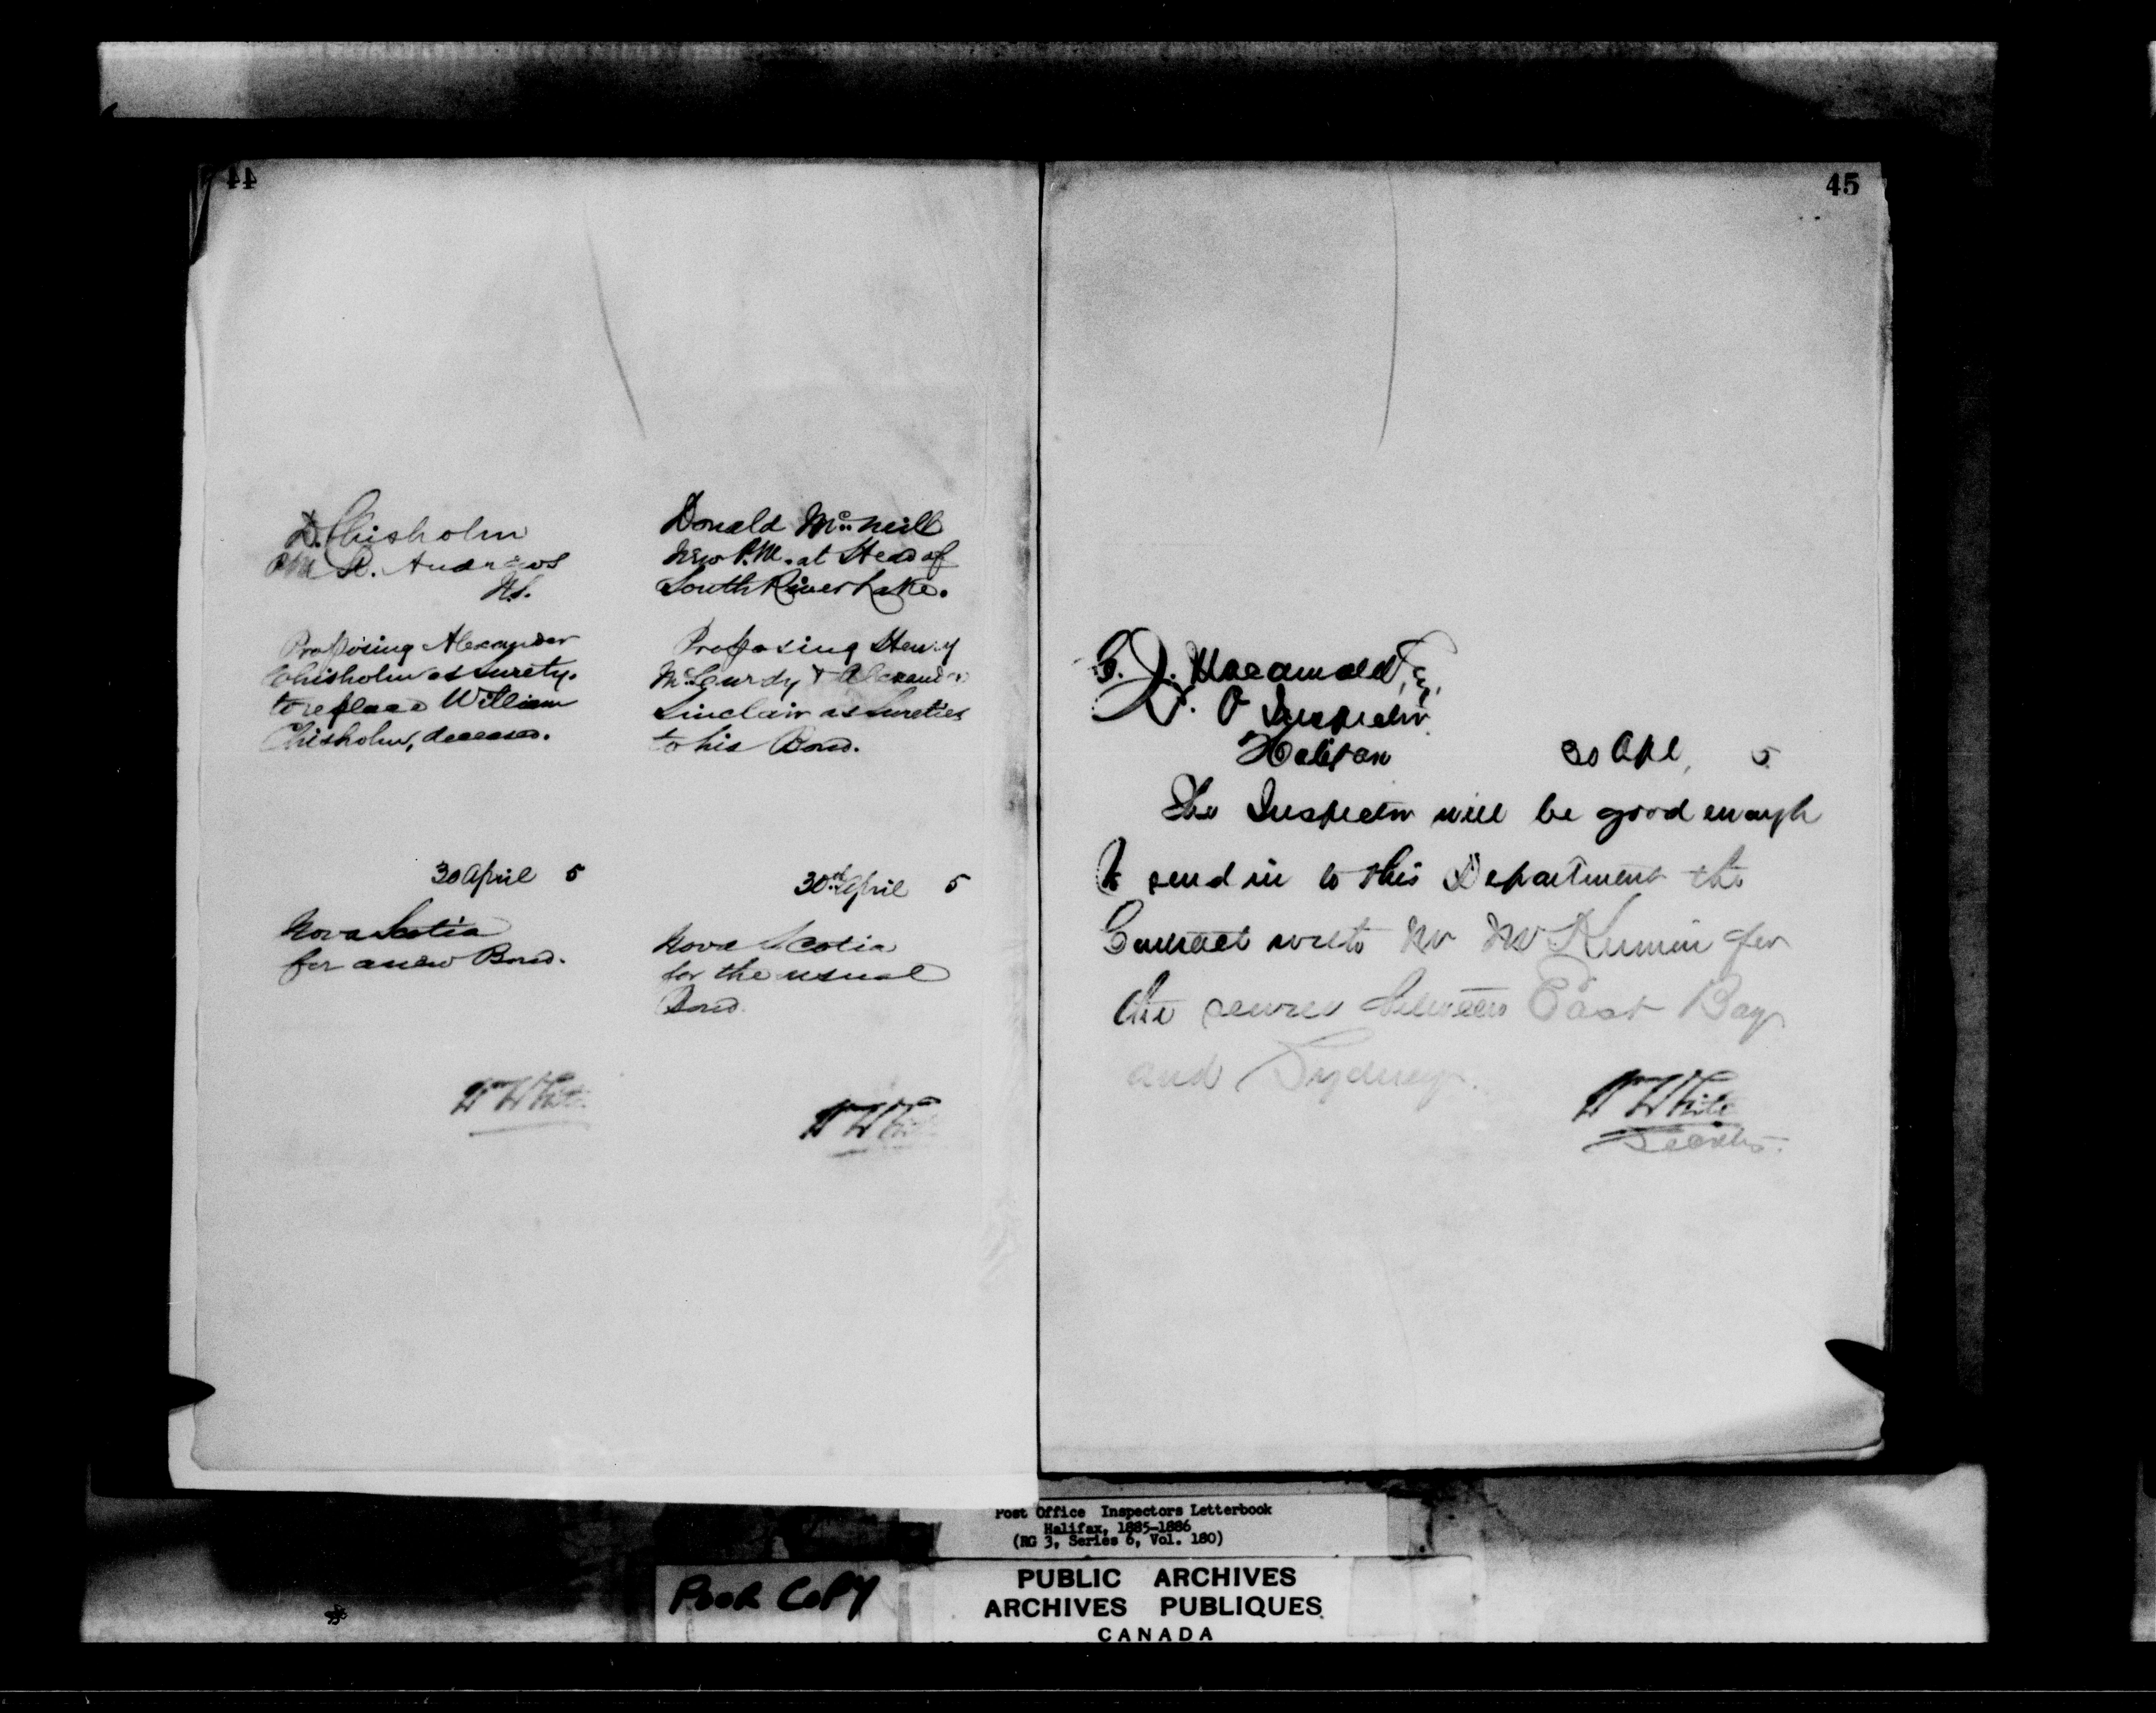 44
D. Chisholm
PM St. Andrews
N.S.
Proposing Alexander
Chisholm as surety.
to replace William
Chisholm, deceased.
30 April 5
Nova Scotia
for a new Bond.
W White
Donald McNeill
New P.M. at Head of
South River Lake.
Proposing Henry
McCurdy & Alexander
Sinclair as Sureties
to his Bond.
30th April 5
Nova Scotia
for the usual
Bond.
W White
45
P. O Inspector
Halifax 30 Apl, 5
The Inspector will be good enough
to send in to this Department the
Contract with Mr for
the service between East Bay
and Sydney.
W White
Post Office Inspectors Letterbook
Halifax, 1885-1886
(RG 3, Series 6, Vol. 180)
POOR COPY
PUBLIC ARCHIVES
ARCHIVES PUBLIQUES
CANADA